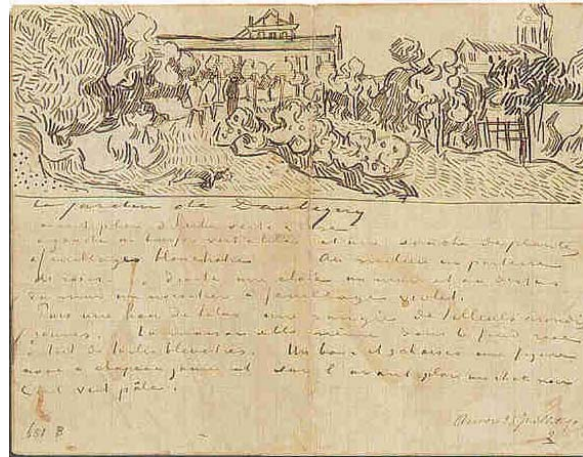 Le jardin de Daubigny
avant plan d'herbe verte et rose
à gauche un buisson vert et lilas et une souche de plantes
à feuillages blanchâtres Au milieu un parterre
de roses. à droite une claie un mur et au dessus
du mur un noisetier à feuillage violet.
Puis une haie de lilas une rangée de tilleuls arrondis
jaunes. La maison elle même dans le fond rose
à toit de tuiles bleuâtres. Un banc et 3 chaises une figure
noire à chapeau jaune et sur l'avant plan un chat noir
Ciel vert pâle.
651 B